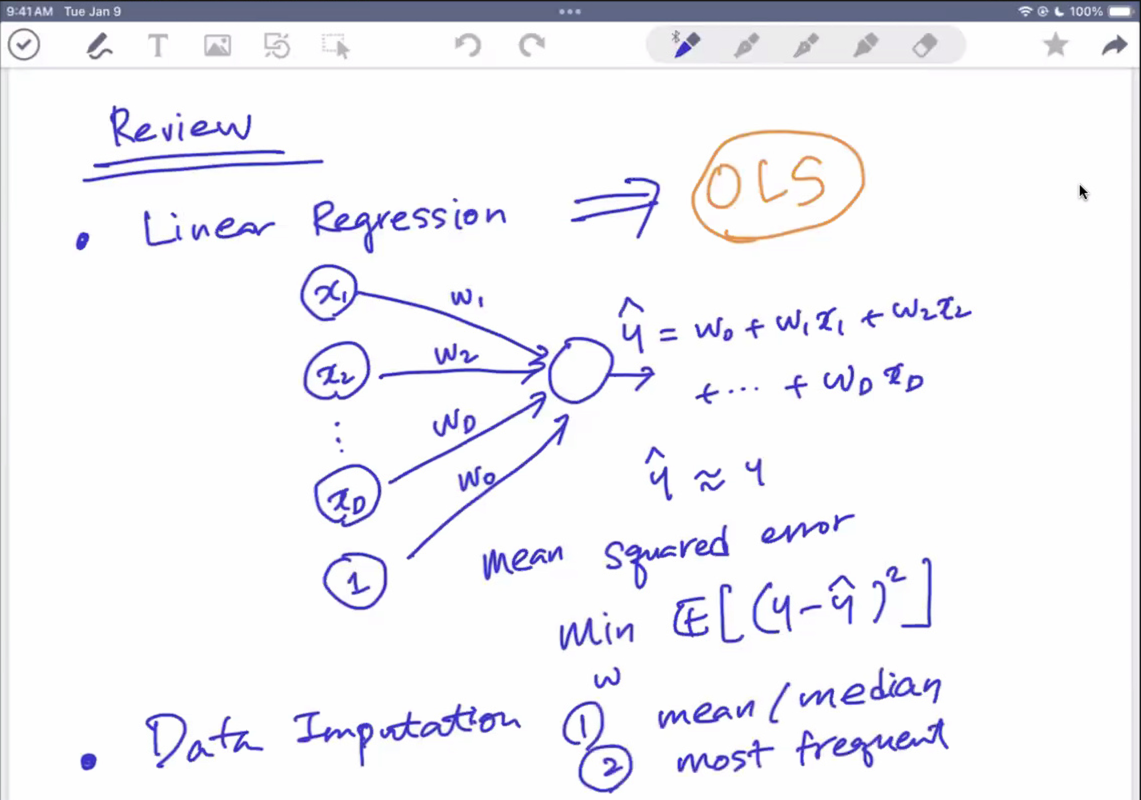 9:41 AM Tue Jan 9
100%
T
Review
• Linear Regression ⇒ OLS
x₁
w₁
ŷ = w₀ + w₁x₁ + w₂x₂
x₂
w₂
+ ⋯ + w_D x_D
⋮
w_D
x_D
w₀
ŷ ≈ y
1
mean squared error
min 𝔼[(y-ŷ)²]
w
• Data Imputation ① mean/median
② most frequent